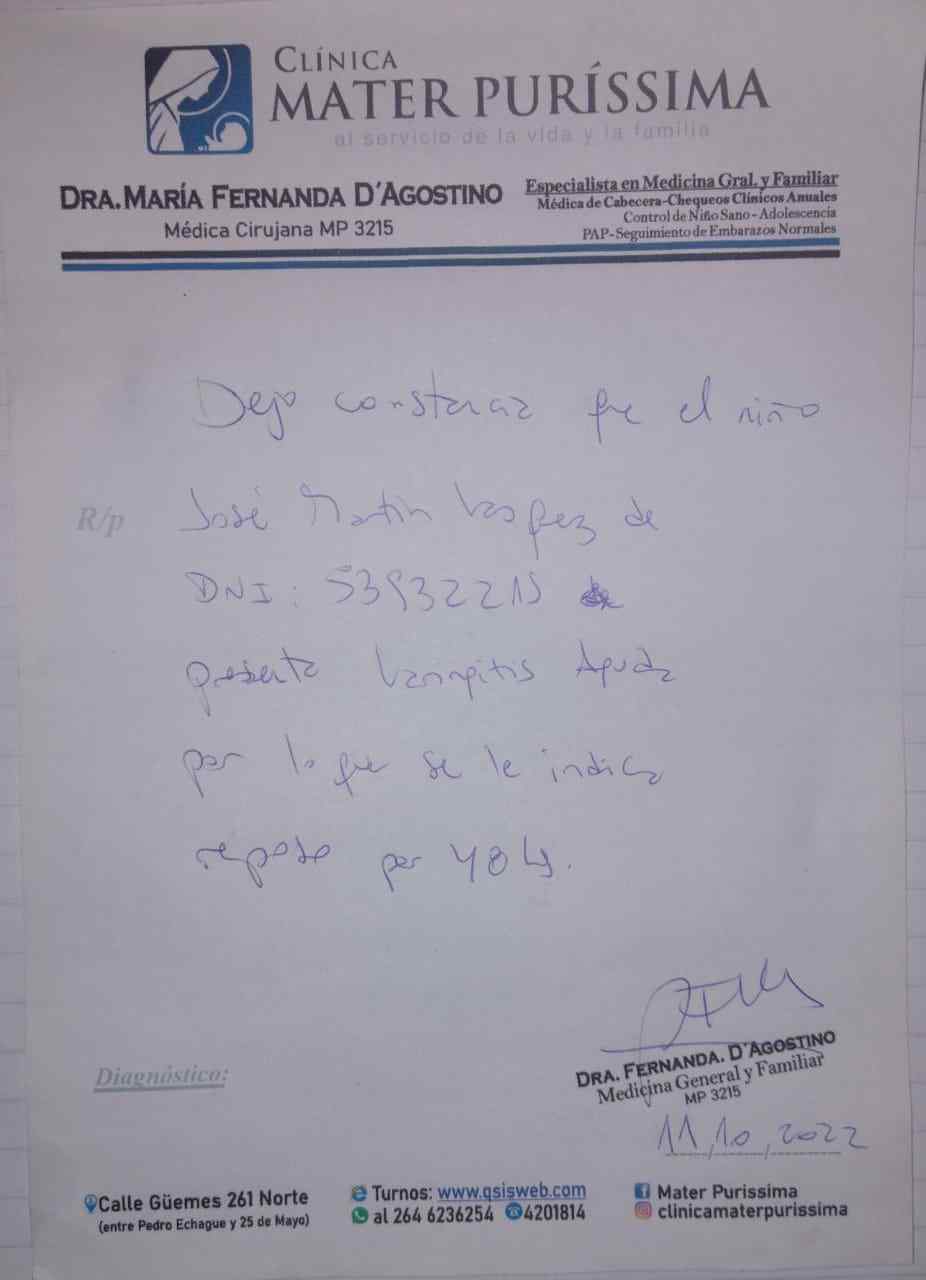 CLÍNICA
MATER PURÍSSIMA
al servicio de la vida y la familia
DRA. MARÍA FERNANDA D'AGOSTINO
Médica Cirujana MP 3215
Especialista en Medicina Gral. y Familiar
Médica de Cabecera-Chequeos Clínicos Anuales
Control de Niño Sano - Adolescencia
PAP-Seguimiento de Embarazos Normales
Dejo constancia que el niño
R/p
José Martín de
DNI:
presenta Laringitis Aguda
por lo que se le indica
reposo por 48 hs.
DRA. FERNANDA. D'AGOSTINO
Medicina General y Familiar
MP 3215
Diagnóstico:
11, 10, 2022
Calle Güemes 261 Norte
(entre Pedro Echague y 25 de Mayo)
Turnos: www.qsisweb.com
al 264 6236254 4201814
Mater Purissima
clinicamaterpurissima